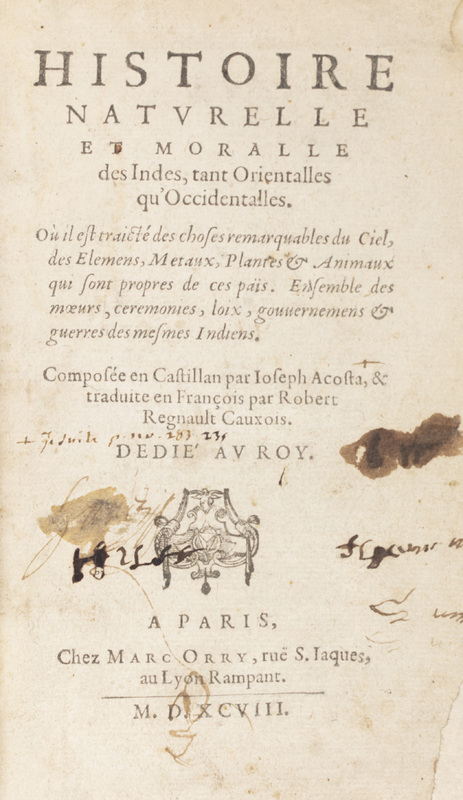 HISTOIRE
NATVRELLE
ET MORALLE
des Indes, tant Orientalles
qu'Occidentalles.
Où il eſt traicté des choſes remarquables du Ciel,
des Elemens, Metaux, Plantes & Animaux
qui ſont propres de ces païs. Enſemble des
mœurs, ceremonies, loix, gouuernemens &
guerres des meſmes Indiens.
Compoſée en Caſtillan par Ioſeph Acoſta, &
traduite en François par Robert
Regnault Cauxois.
+ Jesuite p. 283. 23
DEDIE' AV ROY.
A PARIS,
Chez MARC ORRY, ruë S. Iaques,
au Lyon Rampant.
M. D. XCVIII.